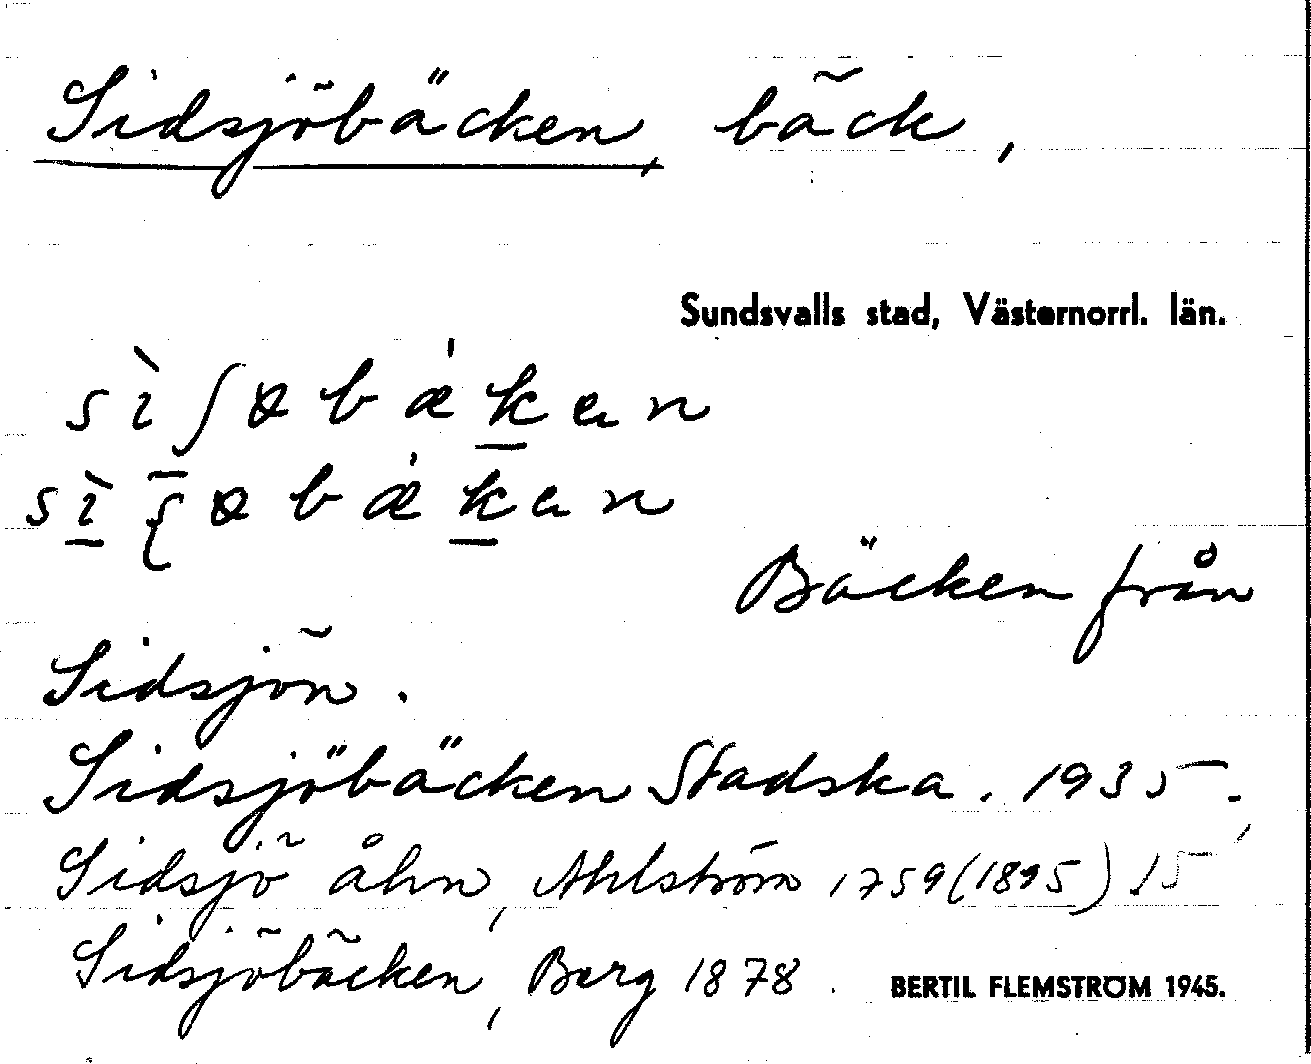 Sidsjöbäcken, bäck,
Sundsvalls stad, Västernorrl. län.
Bäcken från
Sidsjön.
Sidsjöbäcken Stadska. 1935.
Sidsjö åhn, Ahlström 1759 (1895) 15
Sidsjöbäcken, Berg 1878.
BERTIL FLEMSTRÖM 1945.